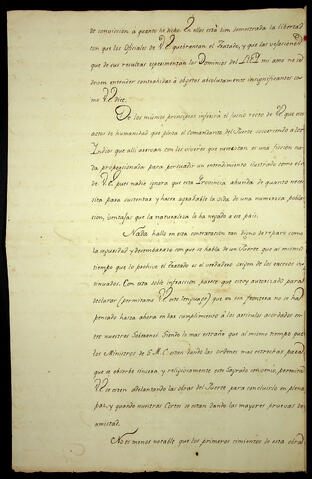 de convicción a quanto he dicho. En ellos está bien demostrada la libertad
con que los Oficiales de V.E. quebrantan el Tratado, y que las vejaciones
que de sus resultas experimentan los Dominios del Rey mi amo no se
deven entender contrahidas á objetos absolutamente insignificantes co-
mo V.E. dice.
De los mismos principios inferirá el juicio recto de V.E. que esos
actos de humanidad que pinta el Comandante del Fuerte socorriendo a los
Indios que alli acercan con los viveres que necesitan es una ficcion no
da proporcionada para persuadir un entendimiento ilustrado como el
de V.E. pues nadie ignora que esta Provincia abunda de quanto nece-
sita para sustentar y hacer agradable la vida de una numerosa pobla-
cion, ventajas que la naturaleza le ha negado a ese pais.
Nada hallo en esta contextacion tan digno de reparo como
la seguridad y desembarazo con que se habla de un Fuerte que al mismo
tiempo que lo prohive el Tratado es el verdadero origen de los excesos in-
sinuados. Con esta sola infraccion parece que estoy autorizado para
declarar (permitame V.E. este lenguaje) que en esa frontera no se ha
pensado hasta ahora en dar cumplimiento á los articulos acordados en-
tre nuestros Soberanos. Siendo lo mas extraño que al mismo tiempo que
los Ministros de S.M.C. esten dando las ordenes mas estrechas para
que se observe sincera, y religiosamente este Sagrado convenio, permita
V.E. se esten adelantando las obras del Fuerte para concluirlo en plena
paz, y quando nuestras Cortes se estan dando las mayores pruevas de
amistad.
No es menos notable que los primeros cimientos de esta obra